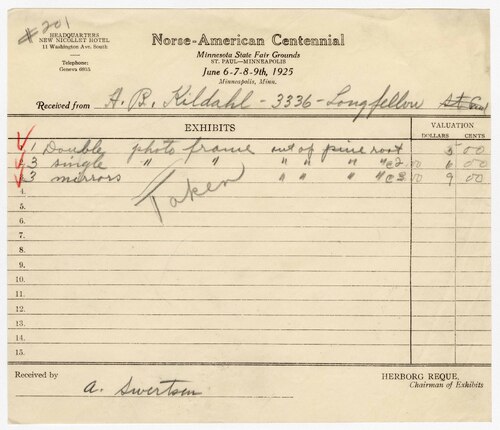 #201
HEADQUARTERS
NEW NICOLLET HOTEL
11 Washington Ave. South
Telephone:
Geneva 6855
Norse-American Centennial
Minnesota State Fair Grounds
ST. PAUL—MINNEAPOLIS
June 6-7-8-9th, 1925
Minneapolis, Minn.
Received from A. B. Kildahl - 3336 - Longfellow
EXHIBITS
VALUATION
DOLLARS CENTS
1 Double photo frame out of pine root 5 00
3 single " " " " " @ 2.00 6 00
3 mirrors " " " @ 3.00 9 00
Taken
4.
5.
6.
7.
8.
9.
10.
11.
12.
13.
Received by
a. Swertsen
HERBORG REQUE,
Chairman of Exhibits